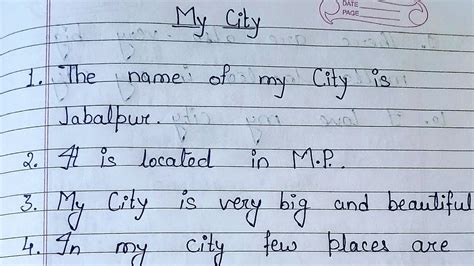 DATE
PAGE
My City
1. The name of my City is
Jabalpur.
2. It is located in M.P.
3. My City is very big and beautiful
4. In my city few places are